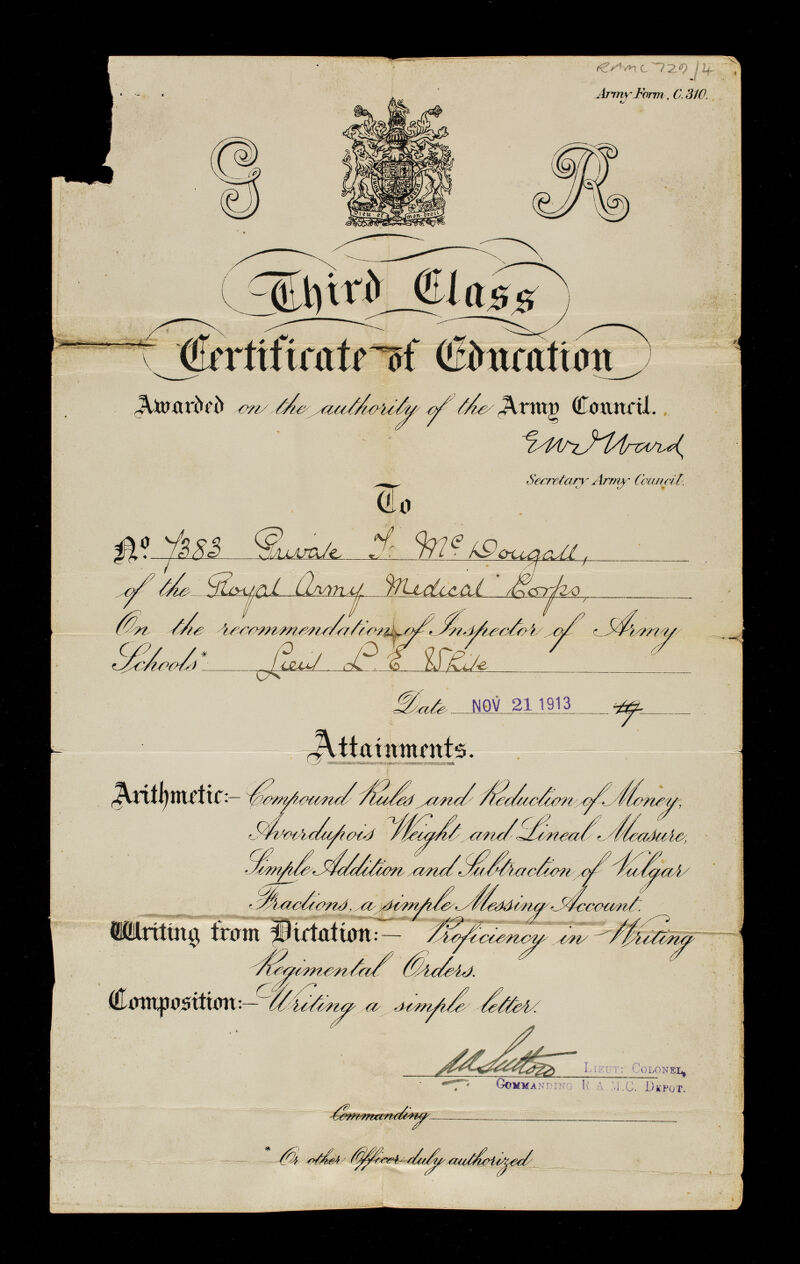 RAMC 729/4
Army Form. C. 310.
G R
Dieu et mon droit
Third Class
Certificate of Education
Awarded on the authority of the Army Council.
EWD Ward
Secretary Army Council.
To
No. 7383 Private T. McDougall,
of the Royal Army Medical Corps,
On the recommendation of Inspector of Army
Schools* Lieut L. E. White
Date NOV 21 1913 19
Attainments.
Arithmetic:- Compound Rules and Reduction of Money,
Avoirdupois Weight and Lineal Measure,
Simple Addition and Subtraction of Vulgar
Fractions, a simple Messing Account.
Writing from Dictation:- Proficiency in Writing
Regimental Orders.
Composition:- Writing a simple letter.
AA Sutton LIEUT: COLONEL,
COMMANDING R.A.M.C. DEPOT.
Commanding
* Or other Officer duly authorized